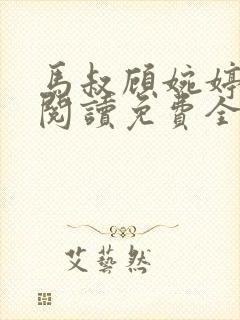 馬叔顧婉婷
閱讀免費全
艾藝然